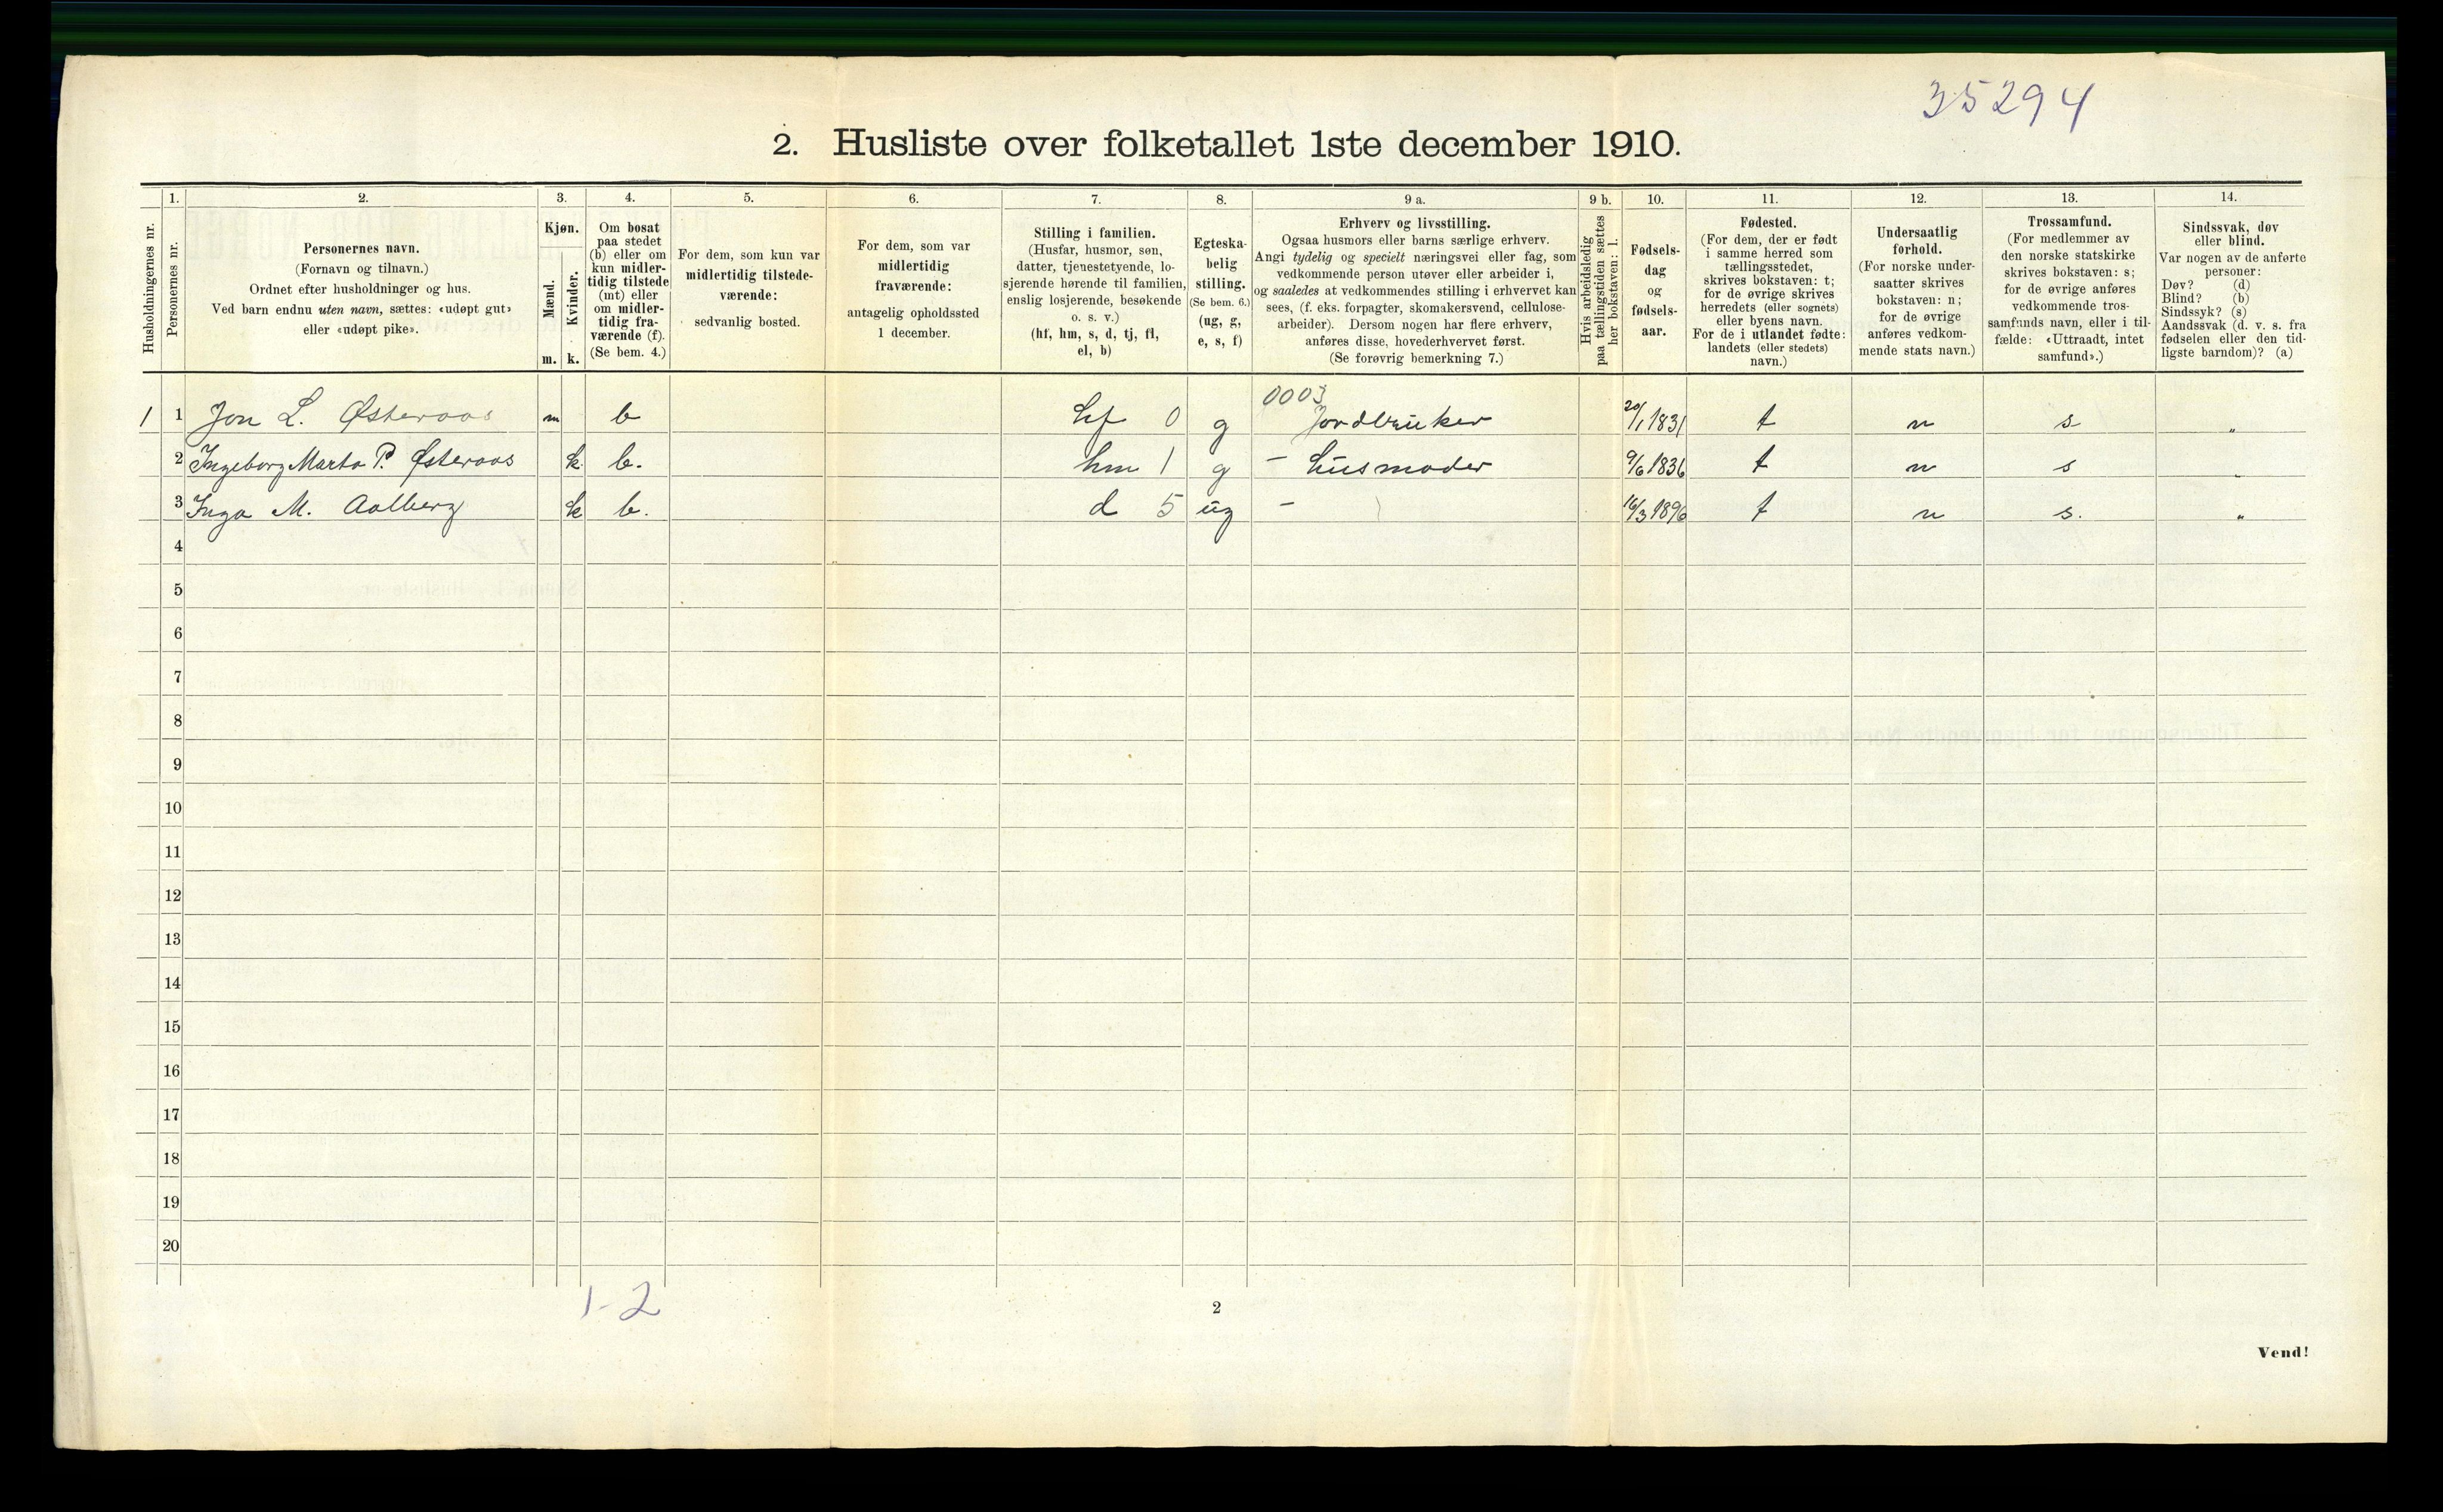 35294
2. Husliste over folketallet 1ste december 1910.
Husholdningernes nr.
1.
Personernes nr.
2.
Personernes navn.
(Fornavn og tilnavn.)
Ordnet efter husholdninger og hus.
Ved barn endnu uten navn, sættes: «udøpt gut»
eller «udøpt pike».
3.
Kjøn.
Mænd.
Kvinder.
m. k.
4.
Om bosat
paa stedet
(b) eller om
kun midler-
tidig tilstede
(mt) eller
om midler-
tidig fra-
værende (f).
(Se bem. 4.)
5.
For dem, som kun var
midlertidig tilstede-
værende:
sedvanlig bosted.
6.
For dem, som var
midlertidig
fraværende:
antagelig opholdssted
1 december.
7.
Stilling i familien.
(Husfar, husmor, søn,
datter, tjenestetyende, lo-
sjerende hørende til familien,
enslig losjerende, besøkende
o. s. v.)
(hf, hm, s, d, tj, fl,
el, b)
8.
Egteska-
belig
stilling.
(Se bem. 6.)
(ug, g,
e, s, f)
9 a.
Erhverv og livsstilling.
Ogsaa husmors eller barns særlige erhverv.
Angi tydelig og specielt næringsvei eller fag, som
vedkommende person utøver eller arbeider i,
og saaledes at vedkommendes stilling i erhvervet kan
sees, (f. eks. forpagter, skomakersvend, cellulose-
arbeider). Dersom nogen har flere erhverv,
anføres disse, hovederhvervet først.
(Se forøvrig bemerkning 7.)
9 b.
Hvis arbeidsledig
paa tællingstiden sættes
her bokstaven: l.
10.
Fødsels-
dag
og
fødsels-
aar.
11.
Fødested.
(For dem, der er født
i samme herred som
tællingsstedet,
skrives bokstaven: t;
for de øvrige skrives
herredets (eller sognets)
eller byens navn.
For de i utlandet fødte:
landets (eller stedets)
navn.)
12.
Undersaatlig
forhold.
(For norske under-
saatter skrives
bokstaven: n;
for de øvrige
anføres vedkom-
mende stats navn.)
13.
Trossamfund.
(For medlemmer av
den norske statskirke
skrives bokstaven: s;
for de øvrige anføres
vedkommende tros-
samfunds navn, eller i til-
fælde: «Uttraadt, intet
samfund».)
14.
Sindssvak, døv
eller blind.
Var nogen av de anførte
personer:
Døv? (d)
Blind? (b)
Sindssyk? (s)
Aandssvak (d. v. s. fra
fødselen eller den tid-
ligste barndom)? (a)
0003
1 1 Jon L. Østeraas m b hf 0 g Jordbruker 20/1 1831 t n s "
2 Ingeborg Marta P. Østeraas k b. hm 1 g - husmoder 9/6 1836 t n s "
3 Inga M. Aalberg k b. d 5 ug - 16/3 1896 t n s. "
4
5
6
7
8
9
10
11
12
13
14
15
16
17
18
19
20
1-2
2
Vend!